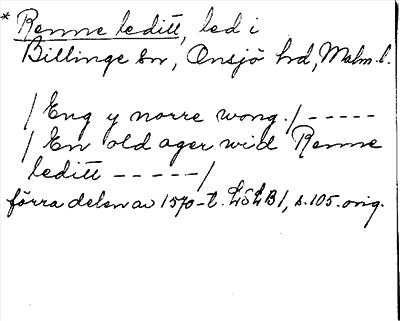 * Renne leditt, led i
Billinge sn, Onsjö hd, Malm. l.
/ Eng y norre wong. / - - - - -
/ En old ager wid Renne
leditt - - - - - /
förra delen av 1570-t. LÖLB 1, s. 105. orig.